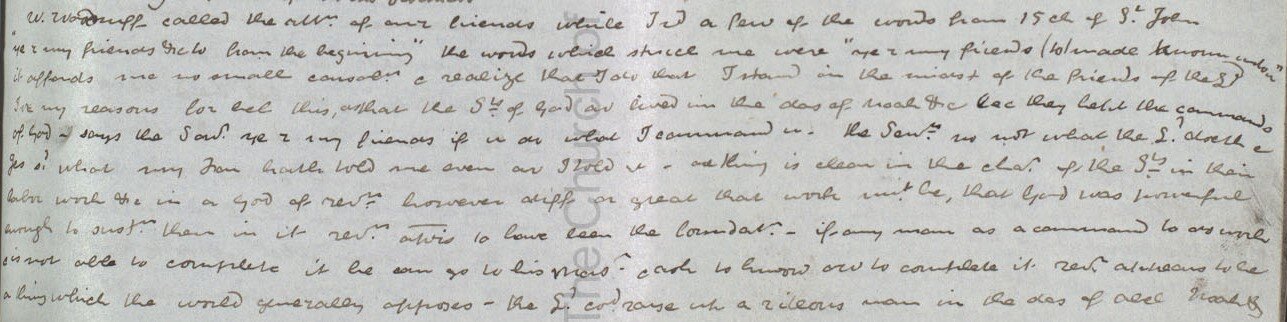 W. Woodruff called the attn. of our friends while I rd a few of the words from 15 ch of St. John
"ye r my friends &c to from the beginning" the words which struck me were "ye r my friends (to) made known unto u"
it affords me no small consoln. c realize that I do that I stand in the midst of the friends of the Ld
for my reasons for bel this, as that the Sts of God av lived in the das of Noah &c bec they kept the commands
of God - says the Savr. ye r my friends if u do what I command u - the Servts. no not what the Ld. doeth c
yes d. what my Far hath told me even av I told u - one thing is clear in the char. of the Sts in their
labor work &c in a God of revn. however diff or great that work mit. be, that God was powerful
enough to sustn. them in it revn. to have been the foundatn. - if any man as a command to do work
c is not able to complete it he can go to his c ask to know ow to complete it revn. appears to be
a thing which the world generally opposes - the Ld. cod. raise up a riteous man in the das of Abel Noah &c
The Church of